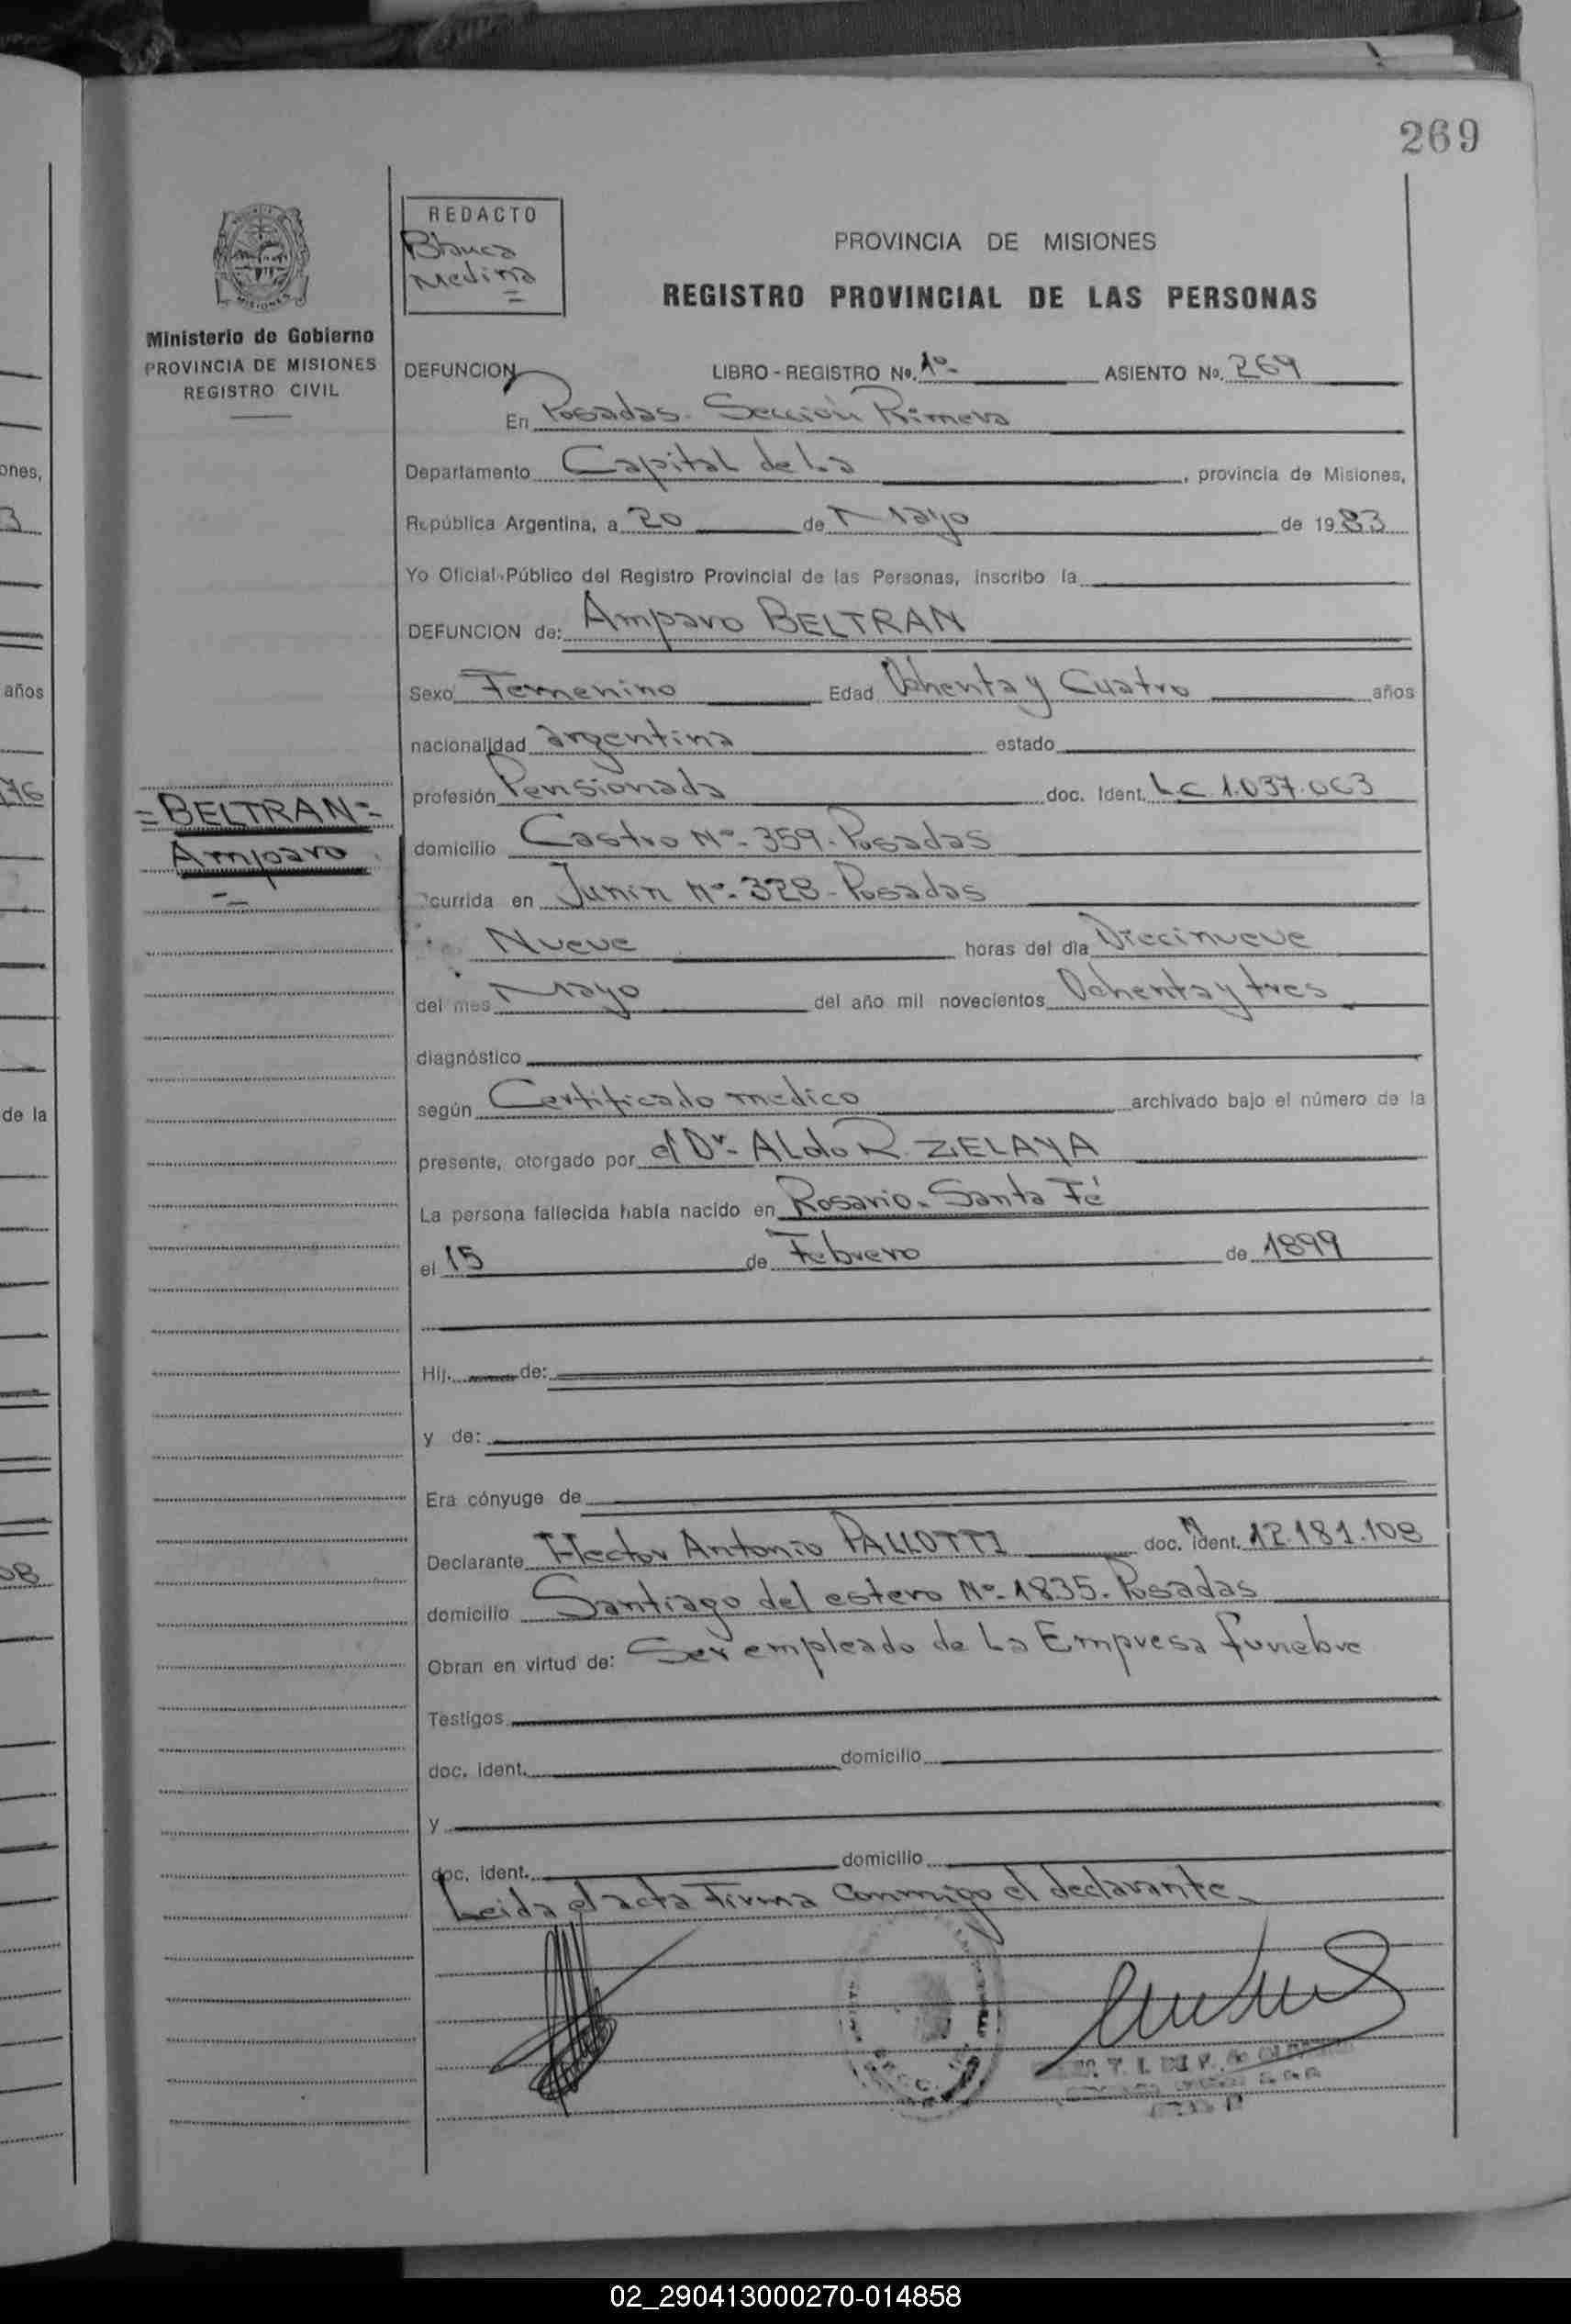 269
REDACTO
Blanca
Medina
=
PROVINCIA DE MISIONES
REGISTRO PROVINCIAL DE LAS PERSONAS
MISIONES
Ministerio de Gobierno
PROVINCIA DE MISIONES
REGISTRO CIVIL
DEFUNCION LIBRO - REGISTRO No. 1º- ASIENTO No. 269
En Posadas- Sección Primera
Departamento Capital de La , provincia de Misiones,
República Argentina, a 20 de Mayo de 1983
Yo Oficial Público del Registro Provincial de las Personas, inscribo la
DEFUNCION de: Amparo BELTRAN
Sexo Femenino Edad Ochenta y Cuatro años
nacionalidad argentina estado
profesión Pensionada doc. Ident. L.C 1.037.063
=BELTRAN=
Amparo
=
domicilio Castro Nº- 359- Posadas
ocurrida en Junin Nº- 328- Posadas
Nueve horas del día Diecinueve
del mes Mayo del año mil novecientos Ochenta y tres
diagnóstico
según Certificado medico archivado bajo el número de la
presente, otorgado por el Dr- ALdo R. ZELAYA
La persona fallecida había nacido en Rosario- Santa Fé
el 15 de Febrero de 1899
Hij. de:
y de:
Era cónyuge de
Declarante Hector Antonio PALLOTTI doc. ident. 12.181.108
domicilio Santiago del estero Nº- 1835- Posadas
Obran en virtud de: Ser empleado de La Empresa funebre
Testigos
doc. ident. domicilio
y
doc. ident. domicilio
Leida el acta Firma conmigo el declarante
ones,
3
años
176
de la
08
02_290413000270-014858